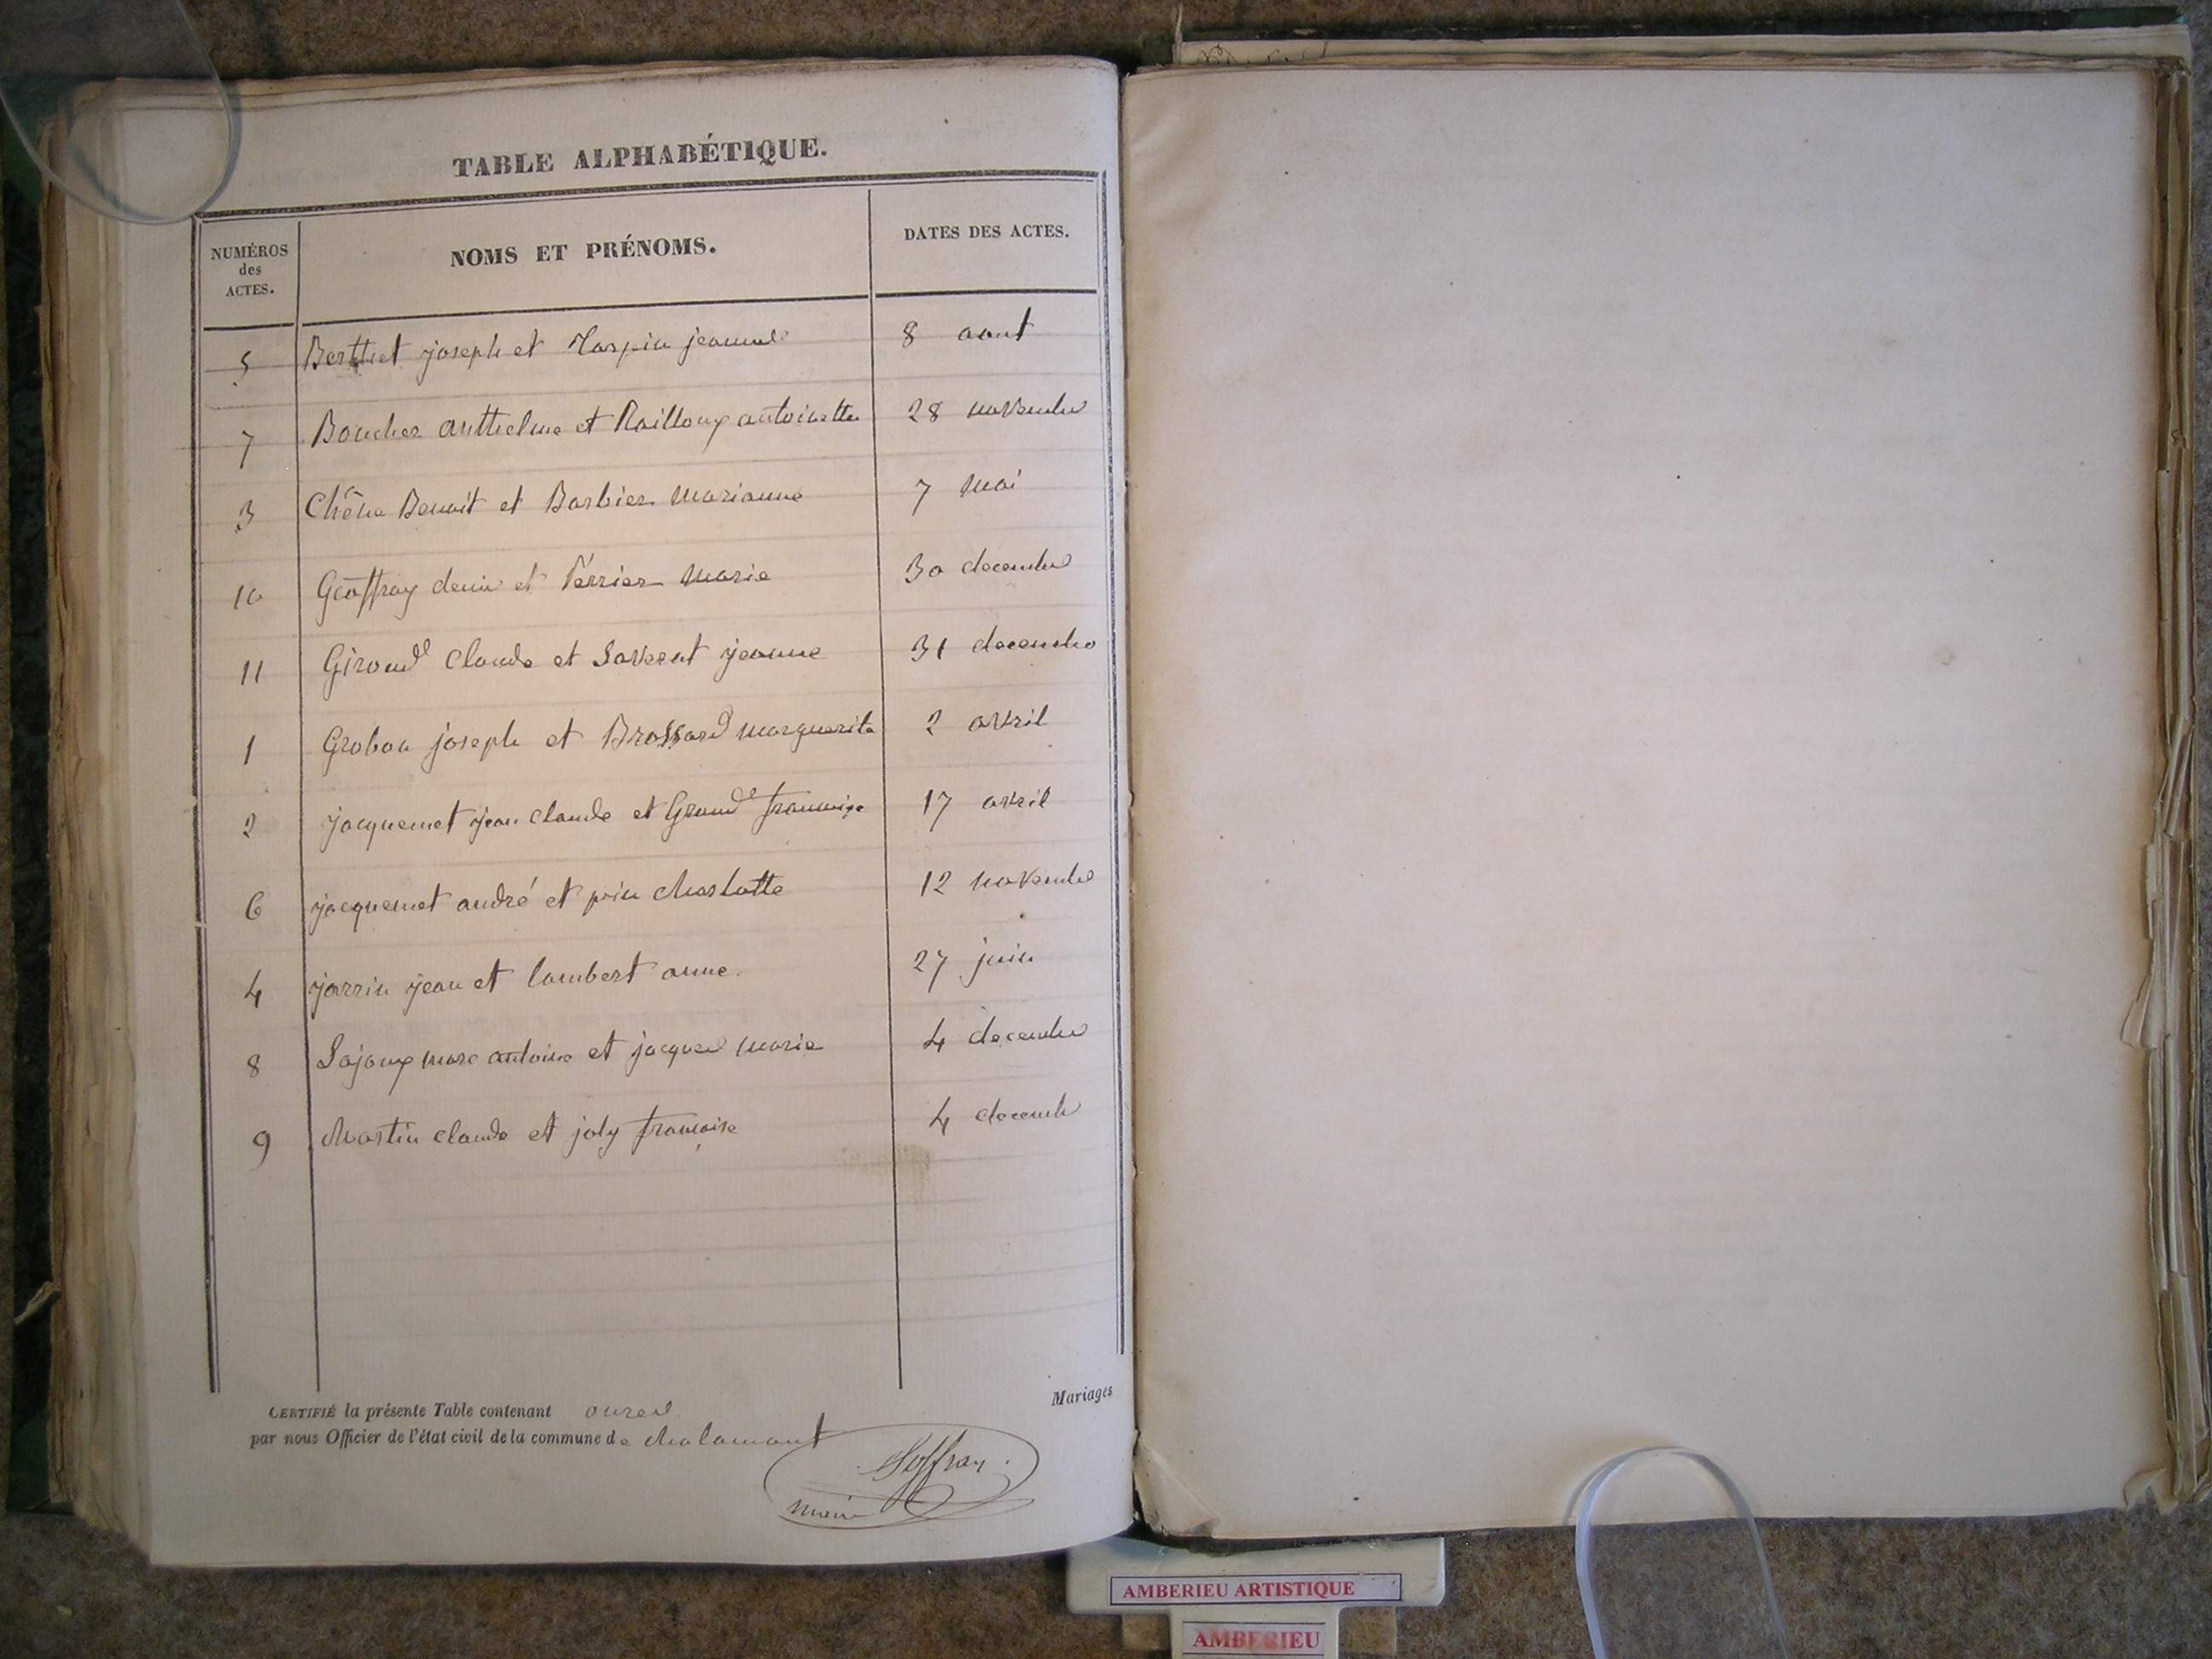 TABLE ALPHABÉTIQUE.
NUMÉROS des ACTES. NOMS ET PRÉNOMS. DATES DES ACTES.
5 Berthet joseph et jeanne 8 aout
7 Boucher anthelme et antoinette 28 novembre
3 Chêne Benoit et Barbier Marianne 7 mai
10 Geoffray denis et Perrier Marie 30 decembre
11 Giroud Claude et jeanne 31 decembre
1 Grobon joseph et Brossard marguerite 2 avril
2 jacquemet jean claude et Grand françoise 17 avril
6 jacquemet andré et pin charlotte 12 novembre
4 jarrin jean et lambert anne. 27 juin
8 Lajoux marc antoine et jacques marie 4 decembre
9 Martin claude et joly francoise 4 decemb
Mariages
CERTIFIÉ la présente Table contenant
par nous Officier de l'état civil de la commune de chalamont
maire
AMBERIEU ARTISTIQUE
AMBERIEU